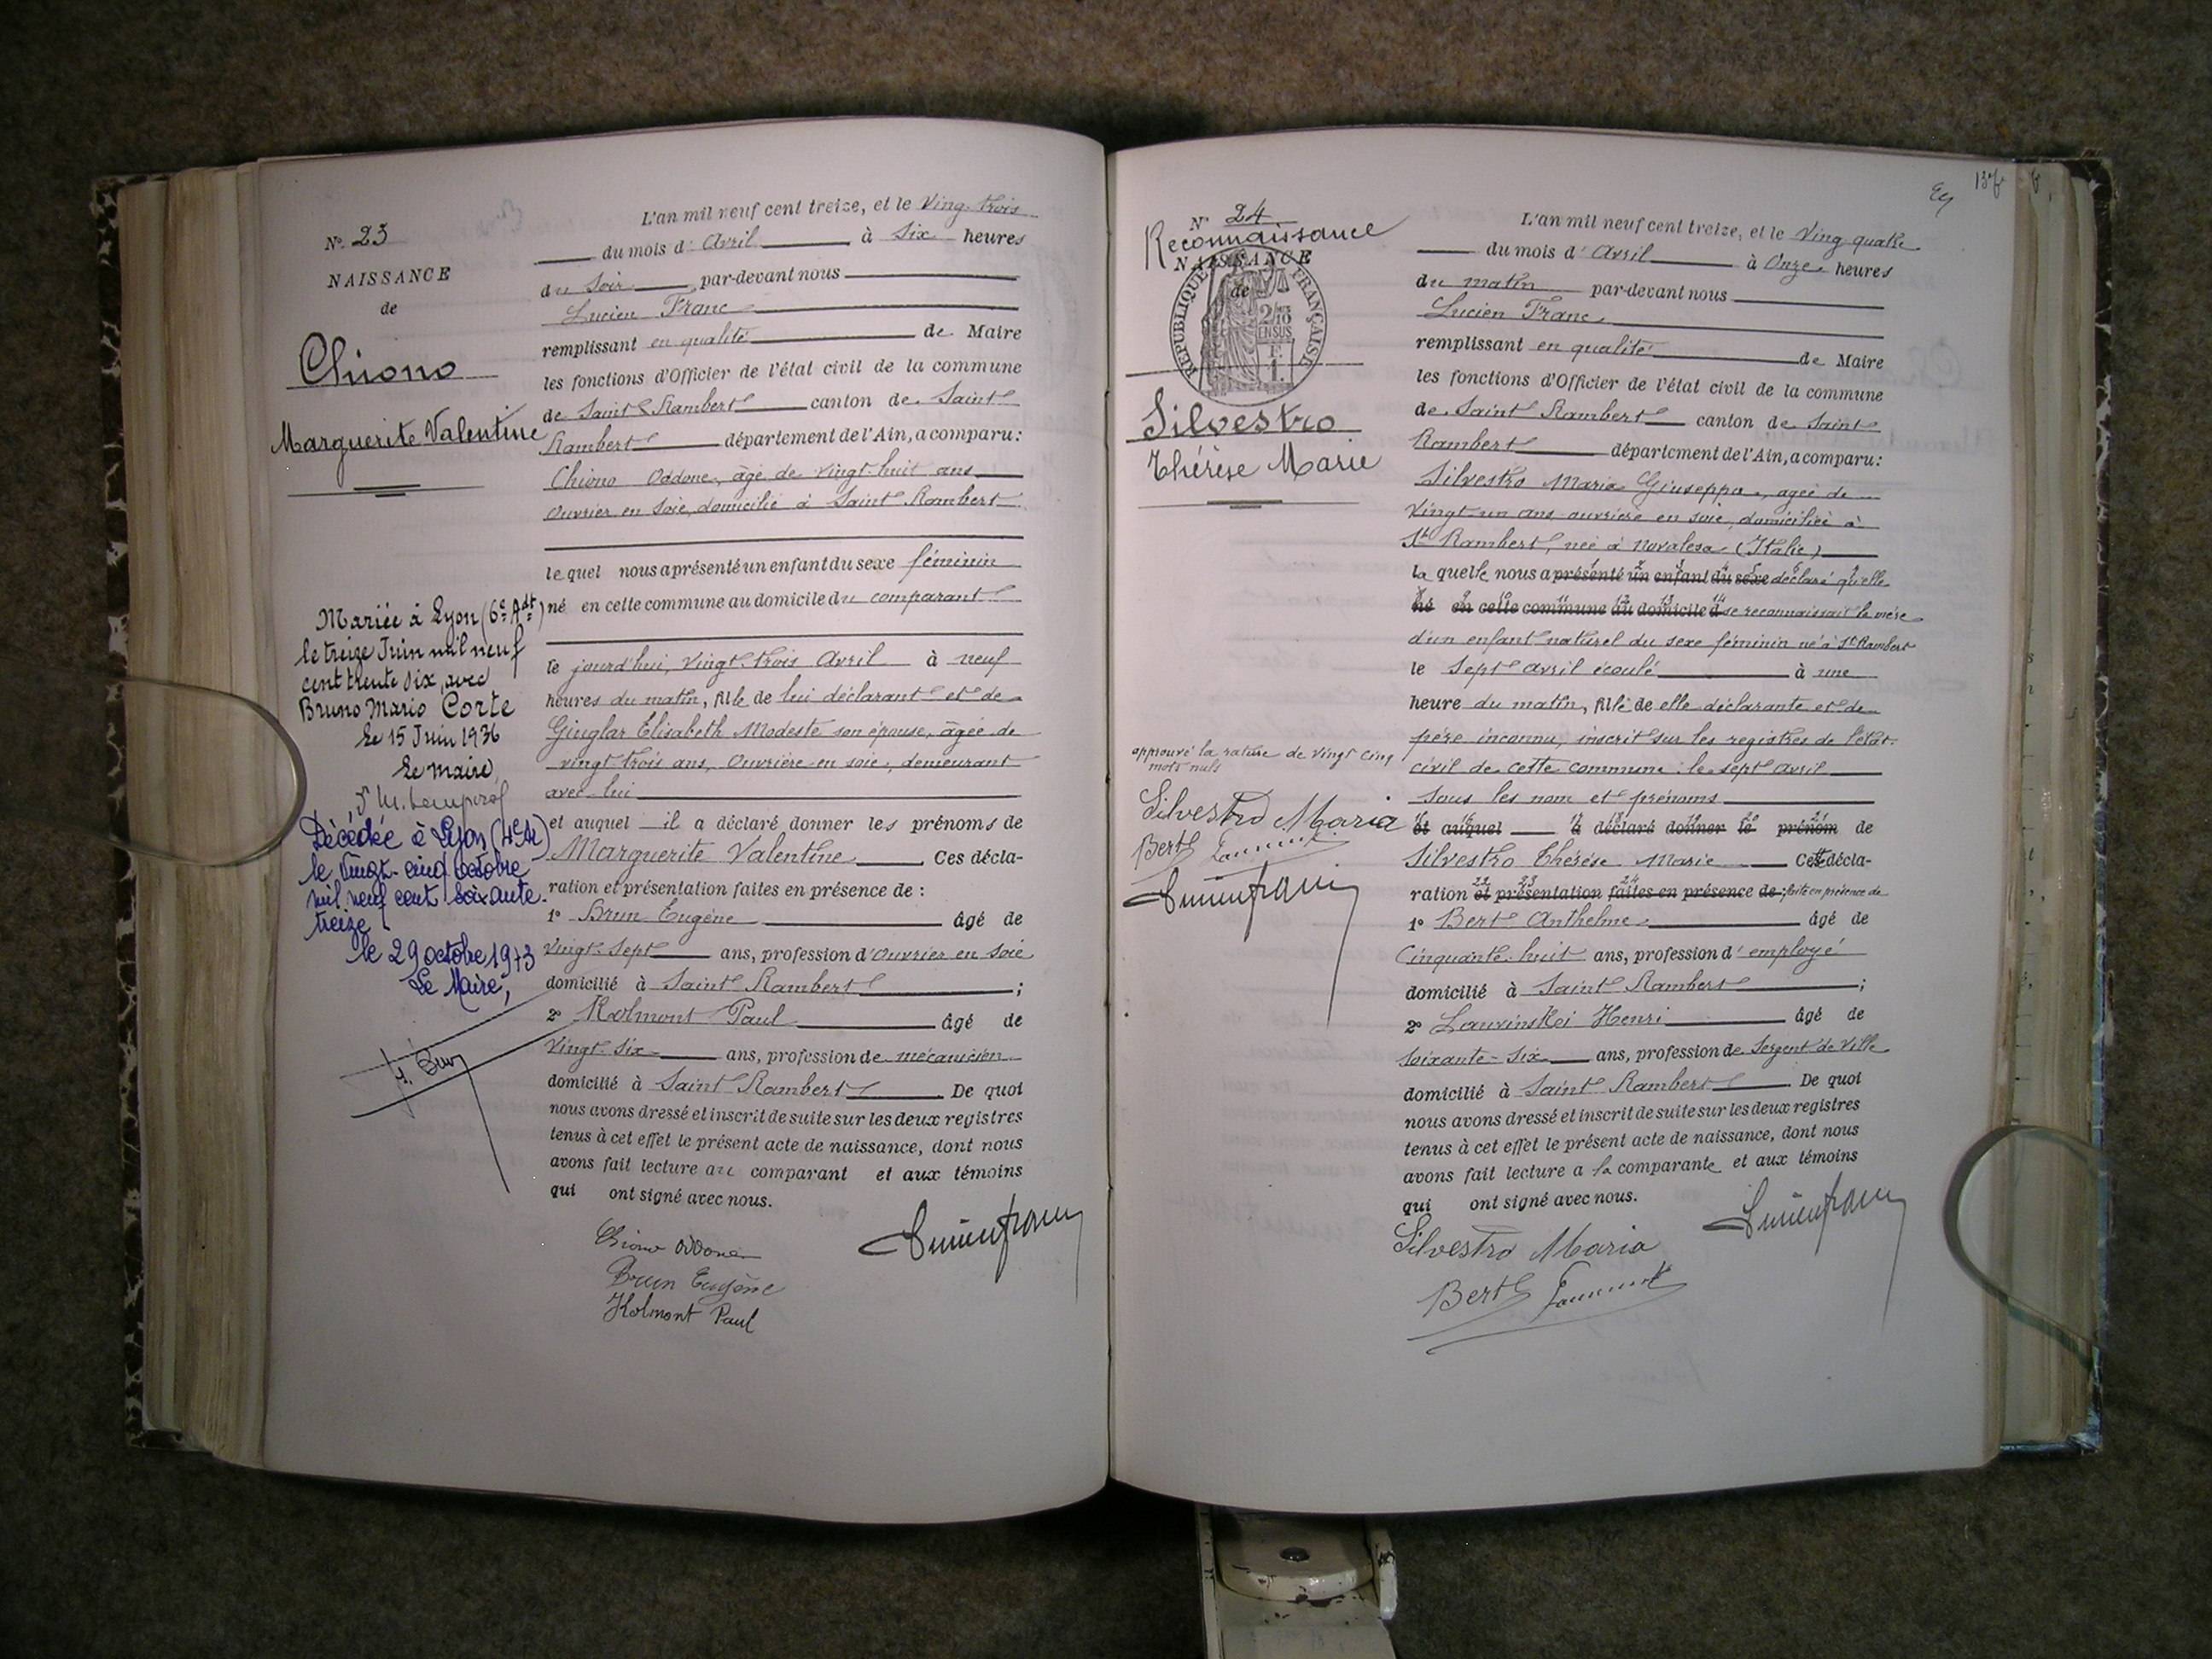 N° 23
NAISSANCE
de
Chiono
Marguerite Valentine
Mariée à Lyon (6e Adt)
le treize Juin mil neuf
cent trente six, avec
Bruno Mario Corte
le 15 Juin 1936
Le maire,
Décédée à Lyon (4e Ar)
le vingt-cinq octobre
mil neuf cent soixante-
treize
le 29 octobre 1973
Le Maire,
L'an mil neuf cent treize, et le Ving-trois
du mois d' Avril à Six heures
du Soir, par-devant nous
Lucien Franc
remplissant en qualité de Maire
les fonctions d'Officier de l'état civil de la commune
de Saint Rambert canton de Saint
Rambert département de l'Ain, a comparu:
Chiono Oddone, âgé de vingt-huit ans
Ouvrier en soie, domicilié à Saint Rambert
le quel nous a présenté un enfant du sexe féminin
né en cette commune au domicile du comparant
le jourd'hui, vingt-trois Avril à neuf
heures du matin, fille de lui déclarant et de
Giuglar Elisabeth Modeste son épouse, âgée de
vingt trois ans, Ouvrière en soie, demeurant
avec lui
et auquel il a déclaré donner les prénoms de
Marguerite Valentine Ces décla-
ration et présentation faites en présence de :
1° Brun Eugène âgé de
Vingt-Sept ans, profession d'Ouvrier en soie
domicilié à Saint Rambert ;
2° Kolmont Paul âgé de
Vingt-Six ans, profession de mécanicien
domicilié à Saint Rambert De quoi
nous avons dressé et inscrit de suite sur les deux registres
tenus à cet effet le présent acte de naissance, dont nous
avons fait lecture au comparant et aux témoins
qui ont signé avec nous.
Chiono Oddone
Brun Eugène
Kolmont Paul
Lucien Franc
137
N° 24
Reconnaissance
NAISSANCE
de
RÉPUBLIQUE FRANÇAISE
2/10
EN SUS
F.
1.
Silvestro
Thérèse Marie
approuvé la rature de vingt cinq
mots nuls
Silvestro Maria
Bert
Lucien Franc
L'an mil neuf cent treize, et le Ving quatre
du mois d' Avril à Onze heures
du matin par-devant nous
Lucien Franc
remplissant en qualité de Maire
les fonctions d'Officier de l'état civil de la commune
de Saint Rambert canton de Saint
Rambert département de l'Ain, a comparu:
Silvestro Maria Giuseppa, agée de
Vingt-un ans ouvrière en soie, domiciliée à
St Rambert, née à Novalesa (Italie)
la quelle nous a présenté un enfant du sexe déclaré qu'elle
né en cette commune au domicile d se reconnaissait la mère
d'un enfant naturel du sexe féminin né à St Rambert
le Sept Avril écoulé à une
heure du matin, fille de elle déclarante et de
père inconnu, inscrit sur les registres de l'état-
civil de cette commune le sept avril
sous les nom et prénoms
et auquel a déclaré donner le prénom de
Silvestro Thérèse Marie Cette décla-
ration et présentation faites en présence de : faite en présence de
1° Bert Anthelme âgé de
Cinquante-huit ans, profession d' employé
domicilié à Saint Rambert ;
2° Lauvinskoi Henri âgé de
Soixante-Six ans, profession de Sergent de Ville
domicilié à Saint Rambert De quoi
nous avons dressé et inscrit de suite sur les deux registres
tenus à cet effet le présent acte de naissance, dont nous
avons fait lecture a la comparante et aux témoins
qui ont signé avec nous.
Silvestro Maria
Bert
Lucien Franc